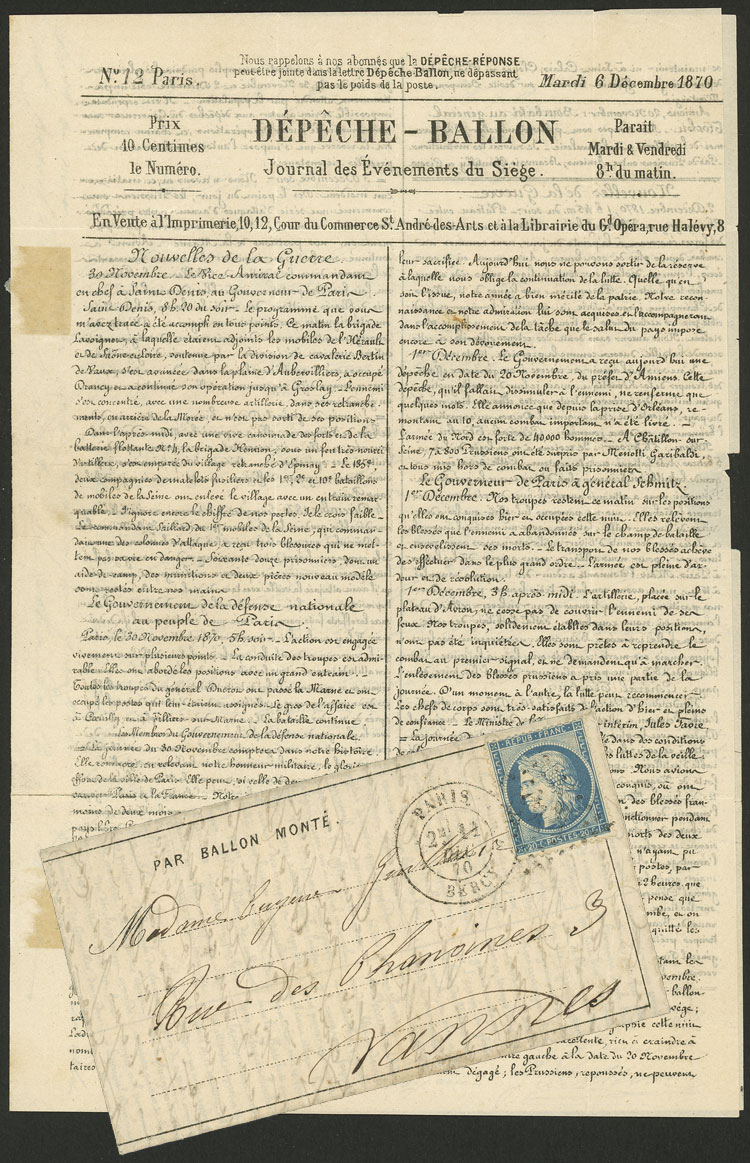 Nous rappelons à nos abonnés que la DÉPÊCHE-RÉPONSE
peut être jointe dans la lettre Dépêche-Ballon, ne dépassant
pas le poids de la poste.
No. 12 Paris.
Mardi 6 Décembre 1870
Prix
10 Centimes
le Numéro.
DÉPÊCHE-BALLON
Journal des Événements du Siège.
Parait
Mardi & Vendredi
8h du matin.
En Vente à l'Imprimerie, 10, 12, Cour du Commerce St André-des-Arts et à la Librairie du Gd Opéra, rue Halévy, 8
Nouvelles de la Guerre.
30 Novembre. - Le Vice Amiral commandant
en chef à Saint Denis, au Gouverneur de Paris.
Saint Denis, 5h,20 du soir. - Le programme que vous
m'avez tracé a été accompli en tous points. Ce matin la brigade
Lavoignet, à laquelle étaient adjoints les mobiles de l'Hérault
et de Saône-et-Loire, soutenue par la division de cavalerie Bertin
de Vaux, s'est avancée dans la plaine d'Aubervilliers, a occupé
Drancy et a continué son opération jusqu'à Groslay. L'ennemi
s'est concentré, avec une nombreuse artillerie, dans ses retranche-
ments, en arrière de la Morée, et n'est pas sorti de ses positions.
Dans l'après-midi, avec une vive canonnade des forts et de la
batterie flottante No 4, la brigade Henrion, sous un fort
d'artillerie, s'est emparée du village retranché d'Epinay. - Le 135e
deux compagnies de matelots fusiliers et les 1er, 2e et 10e bataillons
de mobiles de la Seine ont enlevé le village avec un entrain remar-
quable. - J'ignore encore le chiffre de nos pertes. Je le crois faible. -
Le commandant Saillard, du 1er mobiles de la Seine, qui comman-
dait une des colonnes d'attaque, a reçu trois blessures qui ne met-
tent pas sa vie en danger. - Soixante douze prisonniers, dont un
aide de camp, des munitions et deux pièces nouveau modèle
sont restés entre nos mains.
Le Gouvernement de la défense nationale
au peuple de Paris.
Paris, le 30 Novembre 1870, 5h soir. - L'action est engagée
vivement sur plusieurs points. - La conduite des troupes est admi-
rable. Elles ont abordé les positions avec un grand entrain. -
Toutes les troupes du général Ducrot ont passé la Marne et ont
occupé les postes qui leur étaient assignés. - Le gros de l'affaire est
à Cœuilly et à Villiers-sur-Marne. - La bataille continue
Les Membres du Gouvernement de la défense nationale.
- La journée du 30 Novembre comptera dans notre histoire
Elle consacre, en relevant notre honneur militaire, le glorieux
effort de la ville de Paris. Elle peut, si celle de demain
sauver Paris et la France. - Notre
moins de deux mois
leur sacrifice. Aujourd'hui nous ne pouvons sortir de la réserve
à laquelle nous oblige la continuation de la lutte. Quelle qu'en
soit l'issue, notre armée a bien mérité de la patrie. Notre recon-
naissance et notre admiration lui sont acquises et l'accompagneront
dans l'accomplissement de la tâche que le salut du pays impose
encore à son dévouement.
1er Décembre. - Le Gouvernement a reçu aujourd'hui une
dépêche en date du 20 Novembre, du préfet d'Amiens. Cette
dépêche, qu'il fallait dissimuler à l'ennemi, ne renferme que
quelques mots. Elle annonce que depuis la prise d'Orléans, re-
montant au 10, aucun combat important n'a été livré. -
L'armée du Nord est forte de 40,000 hommes. - A Châtillon-sur-
Seine, 7 à 800 Prussiens ont été surpris par Menotti Garibaldi,
et tous mis hors de combat ou faits prisonniers.
Le Gouverneur de Paris à général Schmitz.
1er Décembre. - Nos troupes restent ce matin sur les positions
qu'elles ont conquises hier et occupées cette nuit. - Elles relèvent
les blessés que l'ennemi a abandonnés sur le champ de bataille
et ensevelissent ses morts. - Le transport de nos blessés achève
de s'effectuer dans le plus grand ordre. - L'armée est pleine d'ar-
deur et de résolution.
1er Décembre, 3h après midi. - L'artillerie, placée sur le
plateau d'Avron, ne cesse pas de couvrir l'ennemi de ses
feux. Nos troupes, solidement établies dans leurs positions,
n'ont pas été inquiétées. Elles sont prêtes à reprendre le
combat au premier signal, et ne demandent qu'à marcher.
L'enlèvement des blessés prussiens a pris une partie de la
journée. D'un moment à l'autre, la lutte peut recommencer.
Les chefs de corps sont très satisfaits de l'action d'hier et pleins
de confiance. - Le Ministre de l' intérim, Jules Favre
- La journée de
dans des conditions
des luttes de la veille.
Nous avions
conquis, où ont
des blessés fran-
pendant
morts des deux
n'ayant pu
postes, par
2 heures, que
pense que
et on
quitté les
Novembre
ballon
siège;
cette nuit
excellente, rien à craindre à
gauche à la date du 20 Novembre
dégagé; les Prussiens, repoussés, ne peuvent
taires
PAR BALLON MONTÉ.
PARIS
2E 14
70
BERCY
REPUB. FRANC.
20 C. POSTES 20 C.
Madame Eugène
Rue des Chanoines 3
Vannes